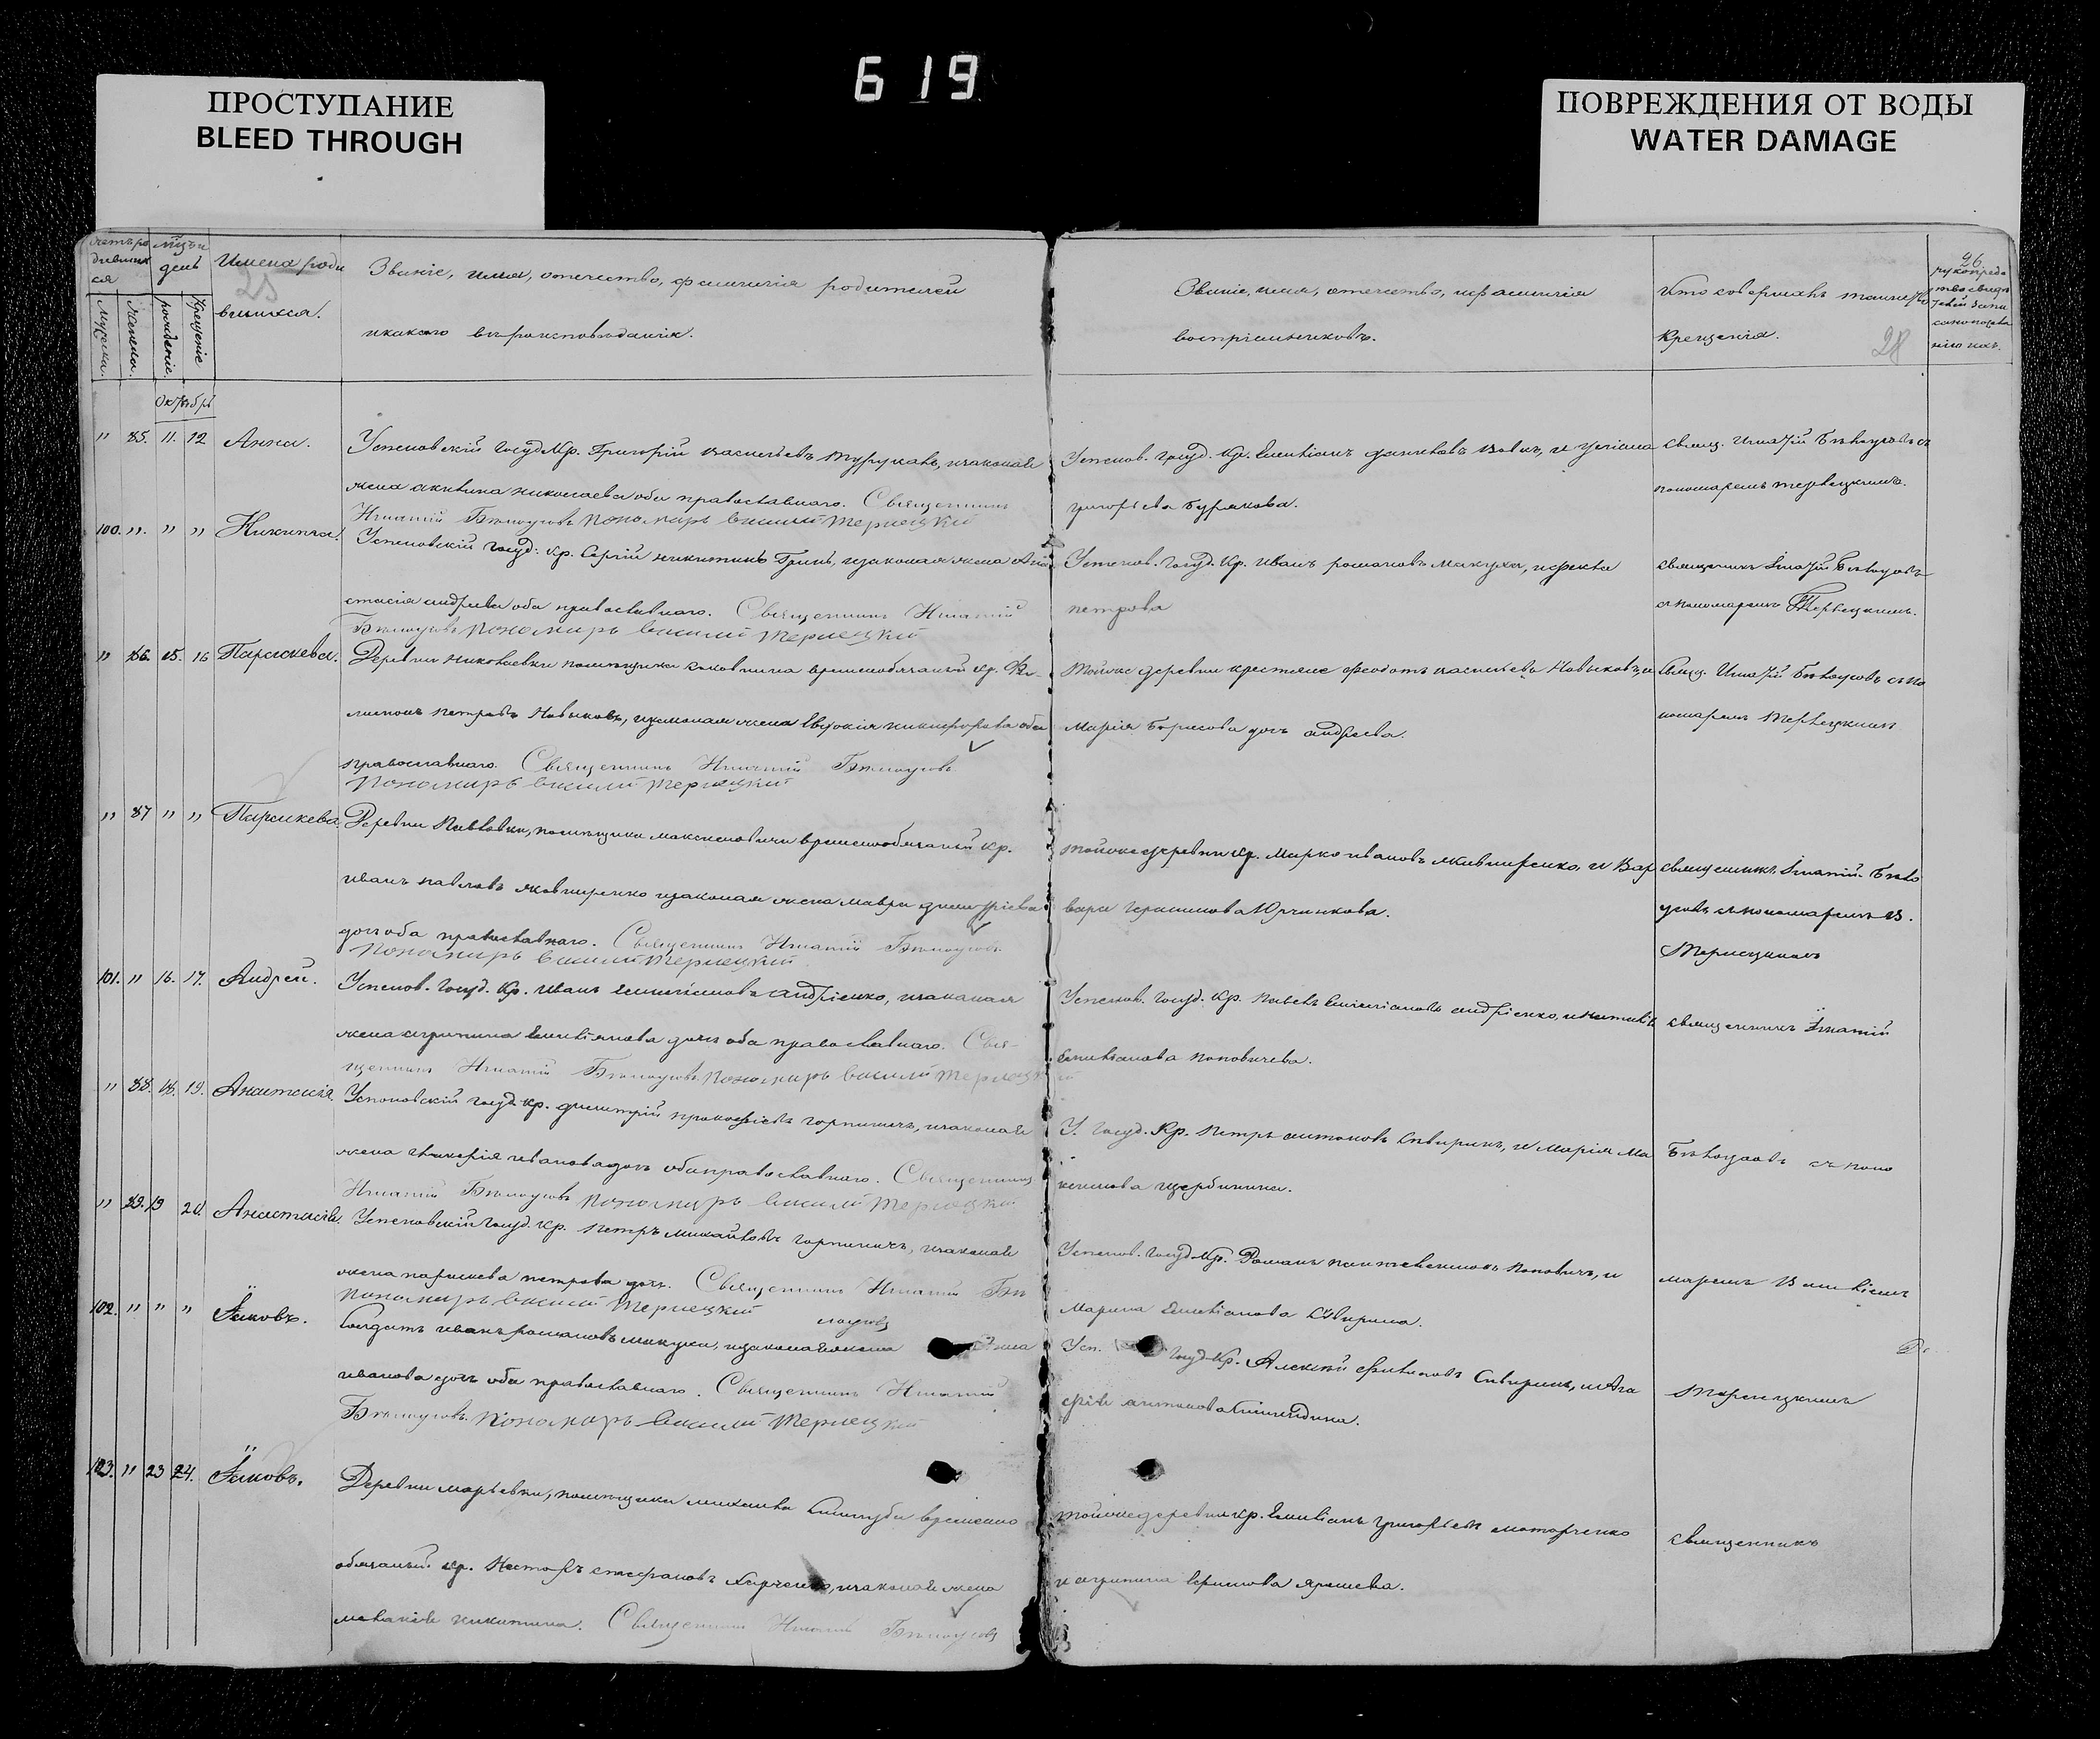 619
ПРОСТУПАНИЕ
BLEED THROUGH
ПОВРЕЖДЕНИЯ ОТ ВОДЫ
WATER DAMAGE
день
Имена роди
вшихся.
25
Мужеска.
Женска.
рожденіе.
Крещеніе
Званіе, имя, отечество, фамилія родителей
икакого вѣроисповѣданія.
Званіе, имя, отечество, ифамилія
воспріемниковъ.
Кто совершалъ таинство
Крещенія.
26.
28
Октябрь
" 85. 11. 12 Анна.
Успеновскій госуд. Кр. Григорій васильевъ, изаконая
жена акилина николаева оба православнаго. Священникъ
Игнатій Бѣлоусовъ Пономарь Василій Тернецкій
Успенов. госуд. Кр. Емиліанъ, и Уліана
григорьева Бурякова.
Свящ. Игнатій Бѣлоусовъ съ
пономаремъ Тернецкимъ.
100. " " " Никита.
Успеновскій госуд. Кр. Сергій никитинъ Гринь, изаконая жена Ана
стасія андреева оба православнаго. Священникъ Игнатій
Бѣлоусовъ Пономарь Василій Тернецкій
Успенов. госуд. Кр. Иванъ романовъ макуха, ифекла
петрова
священникъ Игнатій Бѣлоусовъ
съ пономаремъ Тернецкимъ.
" 86. 15. 16 Параскева.
Деревни Николаевки помещика временнообязаный кр. Фи-
лимонъ петровъ Новыковъ, изаконая жена Евдокія никифорова оба
православнаго. Священникъ Игнатій Бѣлоусовъ
Пономарь Василій Тернецкій
Тойже деревни крестьяне феодотъ васильевъ Новыковъ, и
Марія Борисова дочь андреева.
Свящ. Игнатій Бѣлоусовъ съ по
номаремъ Тернецкимъ
" 87 " " Параскева
Деревни Павловки, помѣщика максимовича временнообязаный кр.
иванъ павловъ изаконая жена мавра димитріева
дочь оба православнаго. Священникъ Игнатій Бѣлоусовъ
Пономарь Василій Тернецкій
тойже деревни кр. Марко ивановъ, и Вар
вара герасимова Юрченкова.
священникъ Игнатій Бѣло
усовъ съ пономаремъ В.
Тернецкимъ
101. " 16. 17. Андрей.
Успенов. госуд. Кр. иванъ емиліановъ андріенко, изаконая
жена агрипина Емиліянова дочь оба православнаго. Свя-
щенникъ Игнатій Бѣлоусовъ Пономарь Василій Тернецкій
Успенов. госуд. Кр. Павелъ Емиліановъ андріенко, и
Емиліанова Поповичева.
священникъ Игнатій
" 88. 18. 19. Анастасія.
Успеновскій госуд. кр. димитрій прокофіевъ горпиничъ, изаконая
жена гликерія иванова дочь оба православнаго. Священникъ
Игнатій Бѣлоусовъ Пономарь Василій Тернецкій
У. госуд. Кр. Петръ антоновъ Сивиринъ, и Марія Ма
ксимова щербинина.
Бѣлоусовъ съ поно
" 89. 19 20 Анастасія.
Успеновскій госуд. кр. Петръ михайловъ горпиничъ, изаконая
жена параскева петрова дочь. Священникъ Игнатій Бѣ
лоусовъ
Пономарь Василій Тернецкій
Успенов. госуд. Кр. Романъ пантелеимонъ Поповичъ, и
Марина Емиліанова Сивирина.
маремъ Василіемъ
102. " " " Іаковъ.
Солдатъ иванъ романовъ макуха, изаконая жена Анна
иванова дочь оба православнаго. Священникъ Игнатій
Бѣлоусовъ. Пономарь Василій Тернецкій
Усп. госуд. Кр. Алексѣй филиповъ Сивиринъ, и Ага
фія антонова
Тернецкимъ
103. " 23 24. Іаковъ.
Деревни марьевки, помѣщика михаила временно
обязаный кр. Несторъ стефановъ Харченко, изаконая жена
меланія никитина. Священникъ Игнатій Бѣлоусовъ
тойже деревни кр. Емиліанъ григорьевъ моторченко
и агрипина ефимова ярошева.
священникъ